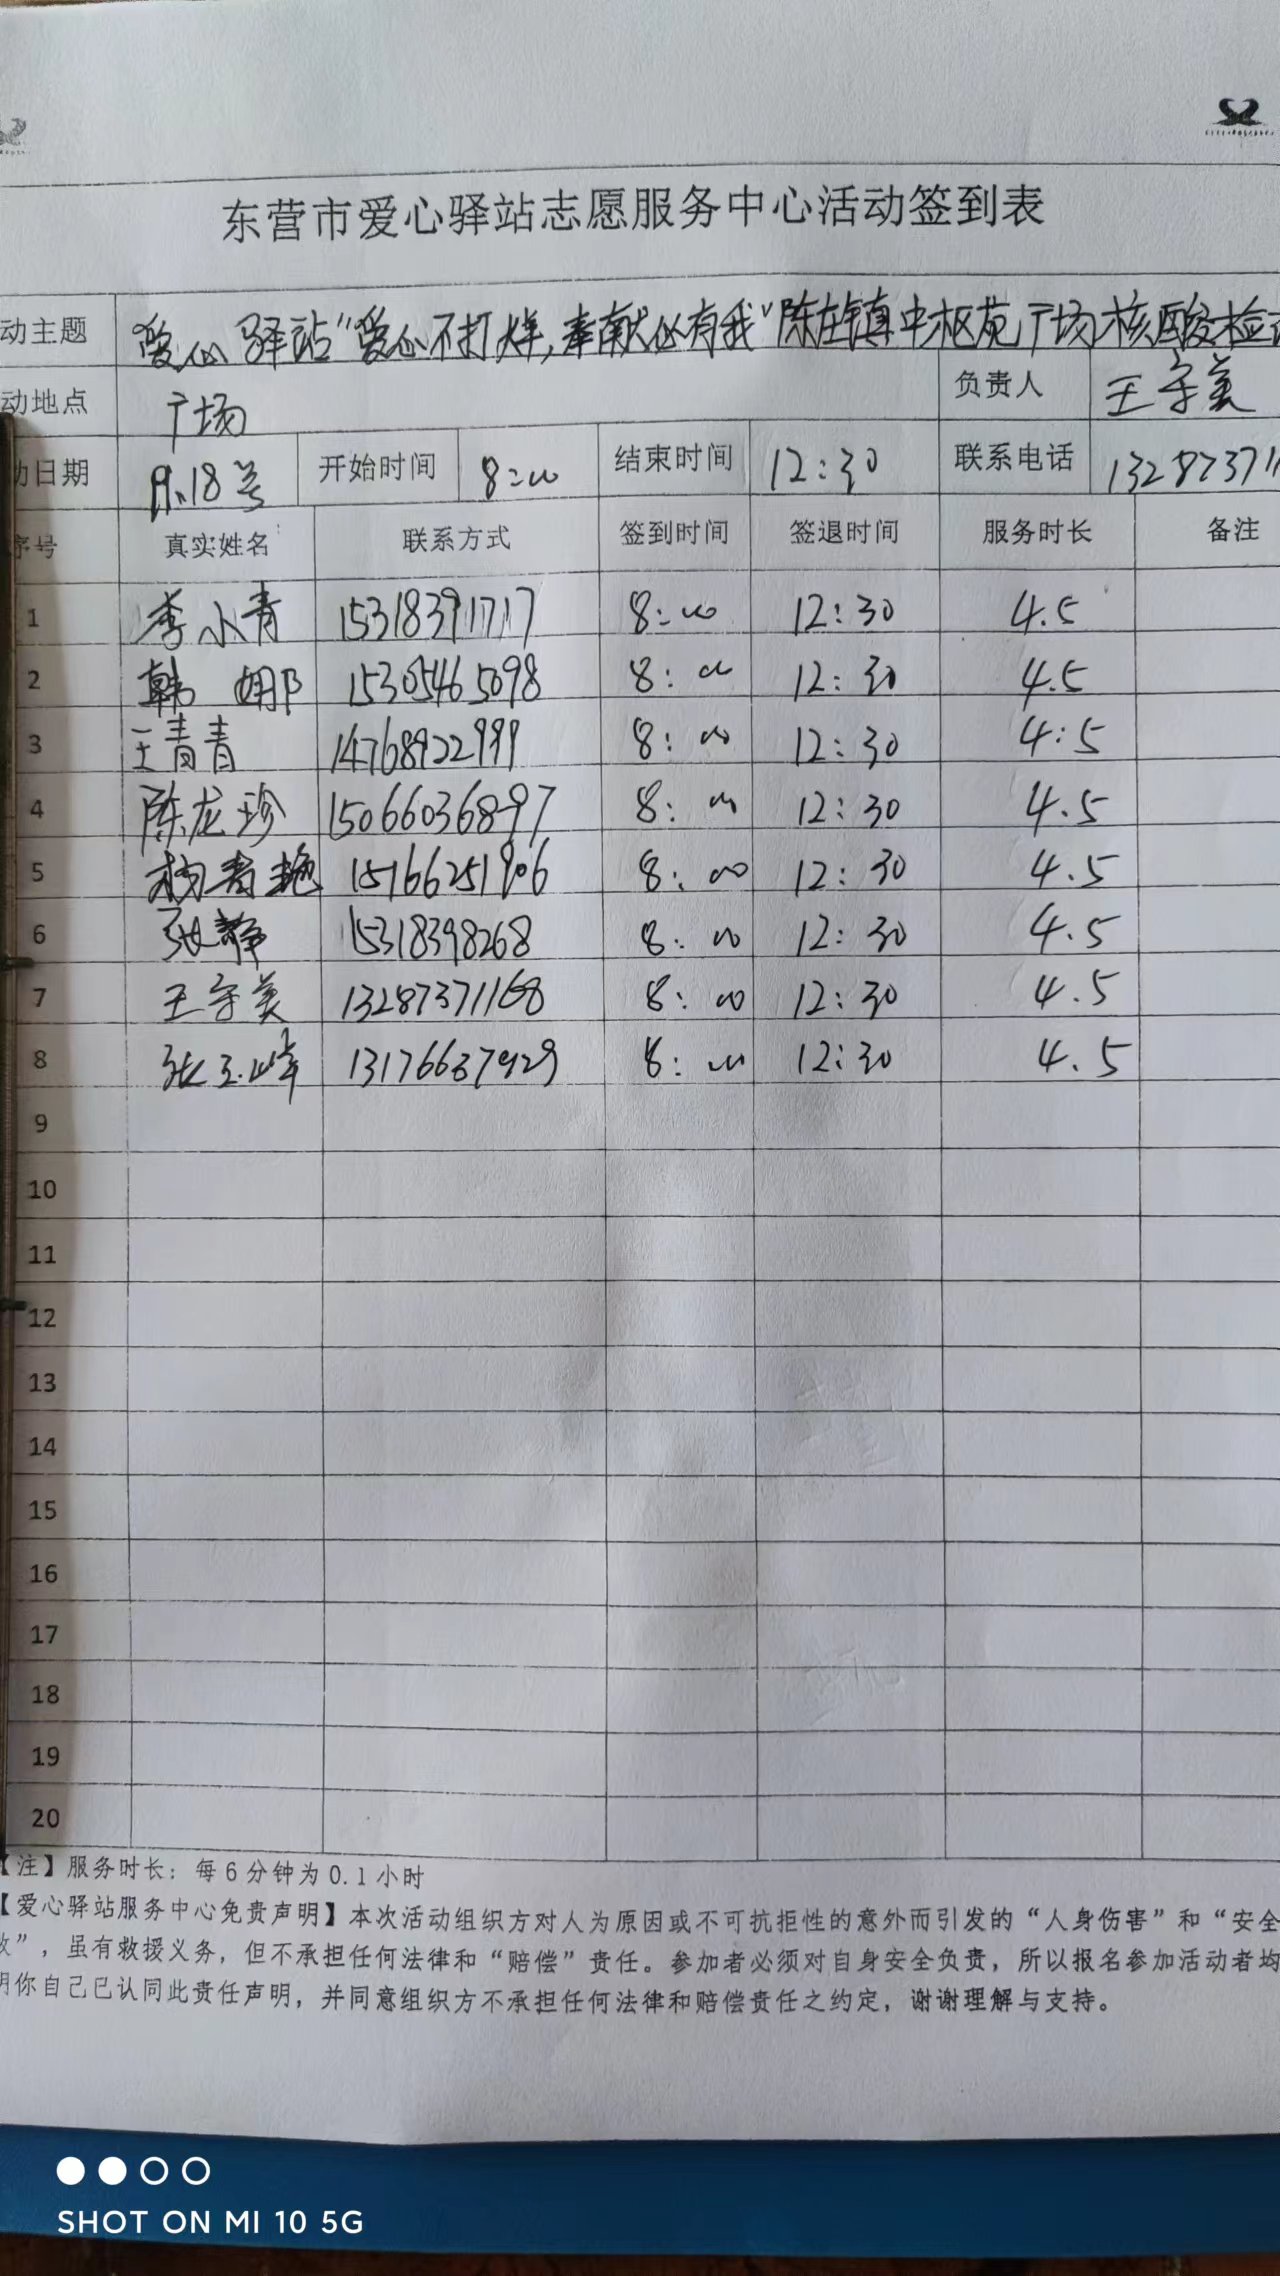 东营市爱心驿站志愿服务中心活动签到表
动主题 爱心驿站“爱心不打烊,奉献必有我”陈庄镇中枢苑广场核酸检
动地点 广场 负责人 王守美
日期 18号 开始时间 8:00 结束时间 12:30 联系电话 132873711
序号 真实姓名 联系方式 签到时间 签退时间 服务时长 备注
1 李小青 15318391717 8:00 12:30 4.5
2 韩娜 15305465098 8:00 12:30 4.5
3 王青青 14768922999 8:00 12:30 4:5
4 陈龙珍 15066036897 8:00 12:30 4.5
5 杨青艳 15166251906 8:00 12:30 4.5
6 张静 15318398268 8:00 12:30 4.5
7 王守美 13287371168 8:00 12:30 4.5
8 张玉峰 13176637929 8:00 12:30 4.5
9
10
11
12
13
14
15
16
17
18
19
20
【注】服务时长：每6分钟为0.1小时
【爱心驿站服务中心免责声明】本次活动组织方对人为原因或不可抗拒性的意外而引发的“人身伤害”和“安全
故”，虽有救援义务，但不承担任何法律和“赔偿”责任。参加者必须对自身安全负责，所以报名参加活动者均
明你自己已认同此责任声明，并同意组织方不承担任何法律和赔偿责任之约定，谢谢理解与支持。
SHOT ON MI 10 5G